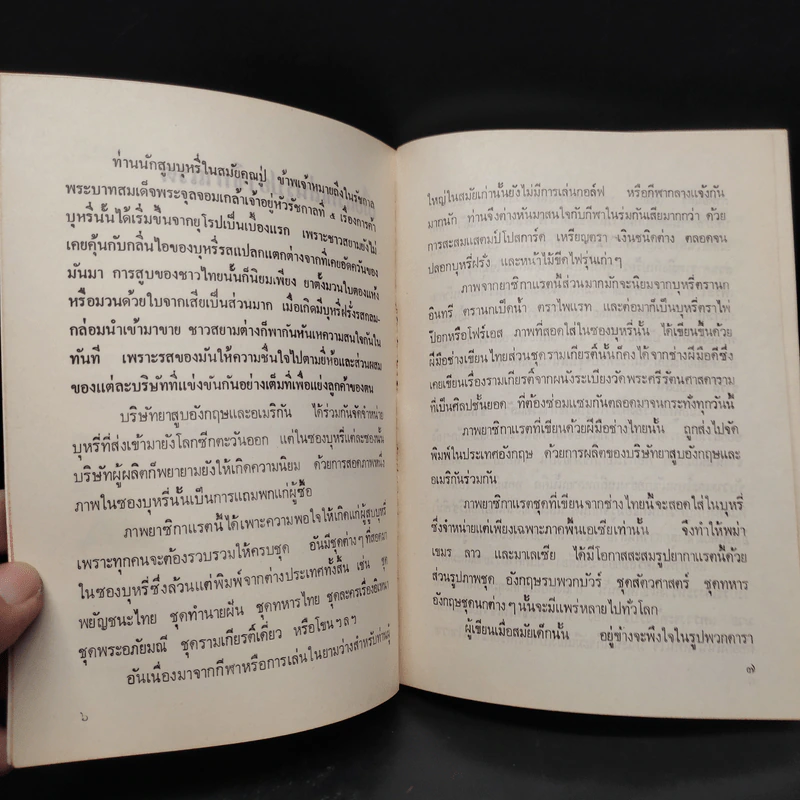 ท่านนักสูบบุหรี่ในสมัยคุณปู่ ข้าพเจ้าหมายถึงในรัชกาล
พระบาทสมเด็จพระจุลจอมเกล้าเจ้าอยู่หัวรัชกาลที่ ๕ เรื่องการค้า
บุหรี่นั้นได้เริ่มขึ้นจากยุโรปเป็นเบื้องแรก เพราะชาวสยามยังไม่
เคยคุ้นกับกลิ่นไอของบุหรี่รสแปลกแตกต่างจากที่เคยอัดควันของ
มันมา การสูบของชาวไทยนั้นก็นิยมเพียง ยาตั้งมวนใบตองแห้ง
หรือมวนด้วยใบจากเสียเป็นส่วนมาก เมื่อเกิดมีบุหรี่ฝรั่งรสกลม-
กล่อมนำเข้ามาขาย ชาวสยามต่างก็พากันหันเหความสนใจกันใน
ทันที เพราะรสของมันให้ความชื่นใจไปตามยี่ห้อและส่วนผสม
ของแต่ละบริษัทที่แข่งขันกันอย่างเต็มที่เพื่อแย่งลูกค้าของตน
บริษัทยาสูบอังกฤษและอเมริกัน ได้ร่วมกันจัดจำหน่าย
บุหรี่ที่ส่งเข้ามายังโลกซีกตะวันออก แต่ในซองบุหรี่แต่ละซองนั้น
บริษัทผู้ผลิตก็พยายามยังให้เกิดความนิยม ด้วยการสอดภาพหนึ่ง
ภาพในซองบุหรี่นั้นเป็นการแถมพกแก่ผู้ซื้อ
ภาพยาซิกาแรตนี้ได้เพาะความพอใจให้เกิดแก่ผู้สูบบุหรี่
เพราะทุกคนจะต้องรวบรวมให้ครบชุด อันมีชุดต่างๆที่สอดมา
ในซองบุหรี่ซึ่งล้วนแต่พิมพ์จากต่างประเทศทั้งสิ้น เช่น ชุด
พยัญชนะไทย ชุดทำนายฝัน ชุดทหารไทย ชุดละครเรื่องอิเหนา
ชุดพระอภัยมณี ชุดรามเกียรติ์เดี่ยว หรือโขน ฯลฯ
อันเนื่องมาจากกีฬาหรือการเล่นในยามว่างสำหรับท่านผู้
๖
ใหญ่ในสมัยเก่านั้นยังไม่มีการเล่นกอล์ฟ หรือกีฬากลางแจ้งกัน
มากนัก ท่านจึงต่างหันมาสนใจกับกีฬาในร่มกันเสียมากกว่า ด้วย
การสะสมแสตมป์โปสการ์ด เหรียญตรา เงินชนิดต่าง ตลอดจน
ปลอกบุหรี่ฝรั่ง และหน้าไม้ขีดไฟรุ่นเก่าๆ
ภาพจากยาซิกาแรตนี้ส่วนมากมักจะนิยมจากบุหรี่ตรานก
อินทรี ตรานกเป็ดน้ำ ตราไพแรท และต่อมาก็เป็นบุหรี่ตราไพ่
ป๊อกหรือโฟร์เอส ภาพที่สอดใส่ในซองบุหรี่นั้น ได้เขียนขึ้นด้วย
ฝีมือช่างเขียนไทยส่วนชุดรามเกียรติ์นั้นก็คงได้จากช่างฝีมือดีซึ่ง
เคยเขียนเรื่องรามเกียรติ์จากผนังระเบียงวัดพระศรีรัตนศาสดาราม
ที่เป็นศิลปชั้นยอด ที่ต้องซ่อมแซมกันตลอดมาจนกระทั่งทุกวันนี้
ภาพยาซิกาแรตที่เขียนด้วยฝีมือช่างไทยนั้น ถูกส่งไปจัด
พิมพ์ในประเทศอังกฤษ ด้วยการผลิตของบริษัทยาสูบอังกฤษและ
อเมริกันร่วมกัน
ภาพยาซิกาแรตชุดที่เขียนจากช่างไทยนี้จะสอดใส่ในบุหรี่
ซึ่งจำหน่ายแต่เพียงเฉพาะภาคพื้นเอเซียเท่านั้น จึงทำให้พม่า
เขมร ลาว และมาเลเซีย ได้มีโอกาสสะสมรูปยากาแรตนี้ด้วย
ส่วนรูปภาพชุด อังกฤษรบพวกบัวร์ ชุดสัตวศาสตร์ ชุดทหาร
อังกฤษชุดนกต่างๆ นั้นจะมีแพร่หลายไปทั่วโลก
ผู้เขียนเมื่อสมัยเด็กนั้น อยู่ข้างจะพึงใจในรูปพวกดารา
๗